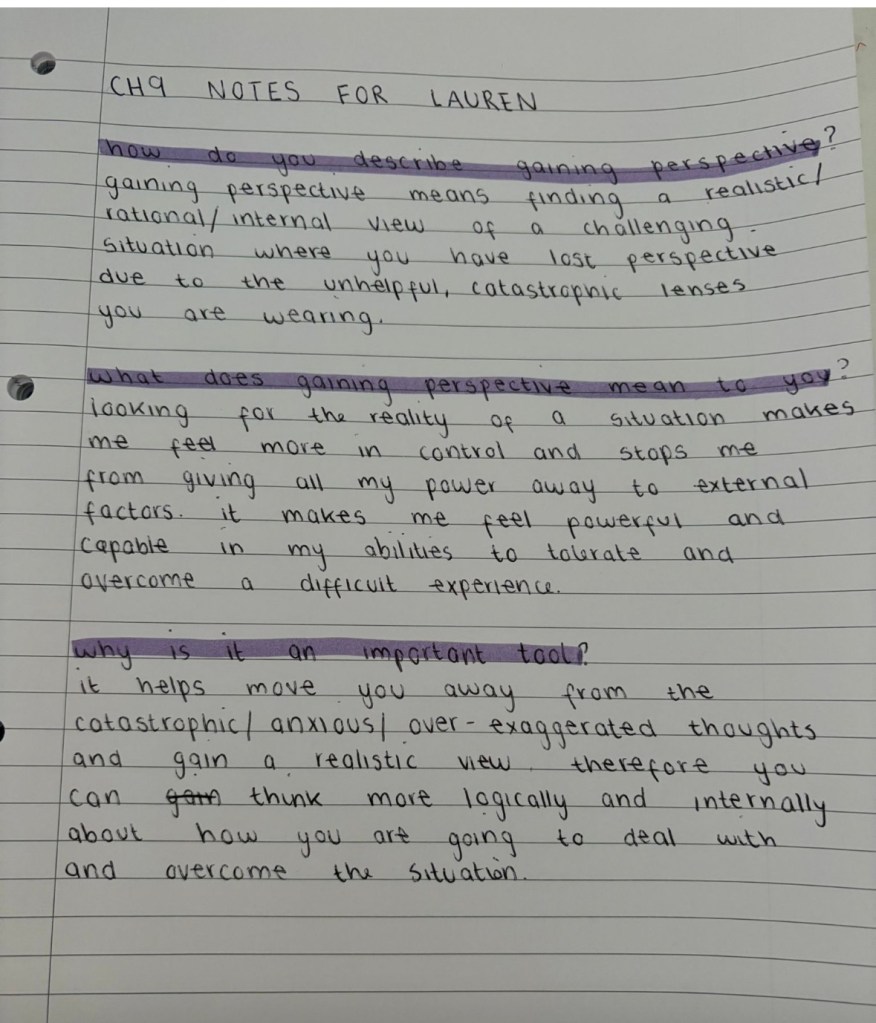 CH9 NOTES FOR LAUREN
how do you describe gaining perspective?
gaining perspective means finding a realistic/
rational/internal view of a challenging
situation where you have lost perspective
due to the unhelpful, catastrophic lenses
you are wearing.
what does gaining perspective mean to you?
looking for the reality of a situation makes
me feel more in control and stops me
from giving all my power away to external
factors. it makes me feel powerful and
capable in my abilities to tolerate and
overcome a difficult experience.
why is it an important tool?
it helps move you away from the
catastrophic/anxious/over-exaggerated thoughts
and gain a realistic view. therefore you
can gain think more logically and internally
about how you are going to deal with
and overcome the situation.